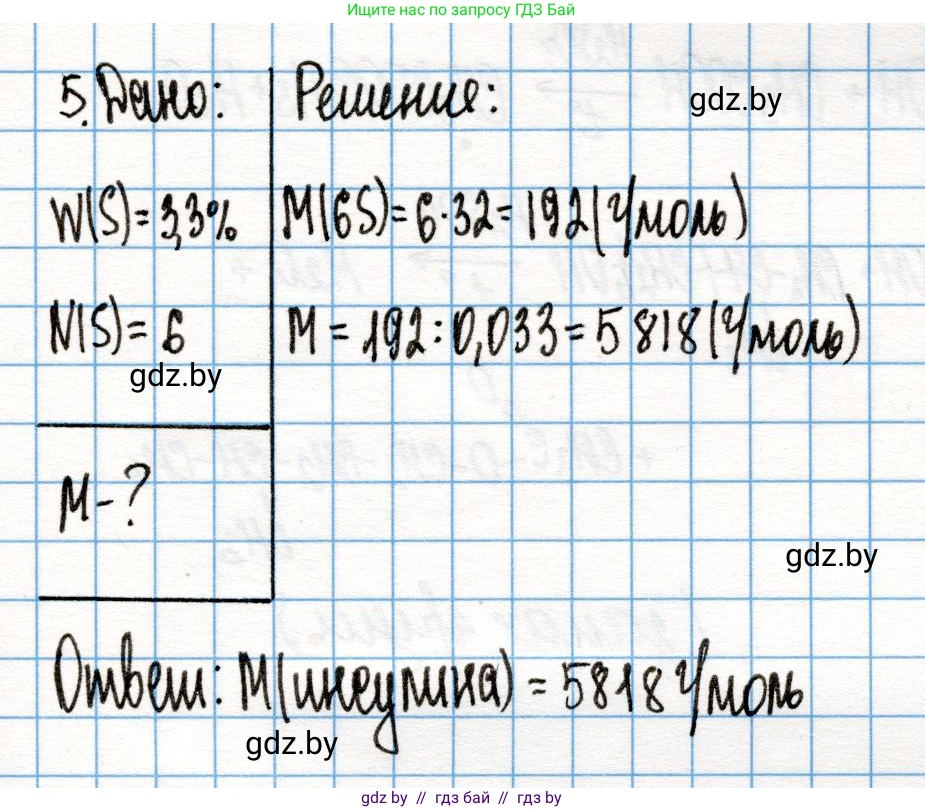 Ищите нас по запросу ГДЗ Бай
5. Дано:
W(S) = 3,3%
N(S) = 6
gdz.by
M - ?
Решение:
gdz.by
M(6S) = 6·32 = 192 (г/моль)
M = 192 : 0,033 = 5818 (г/моль)
gdz.by
Ответ: M(инсулина) = 5818 г/моль
gdz.by
gdz.by // гдз бай // гдз by